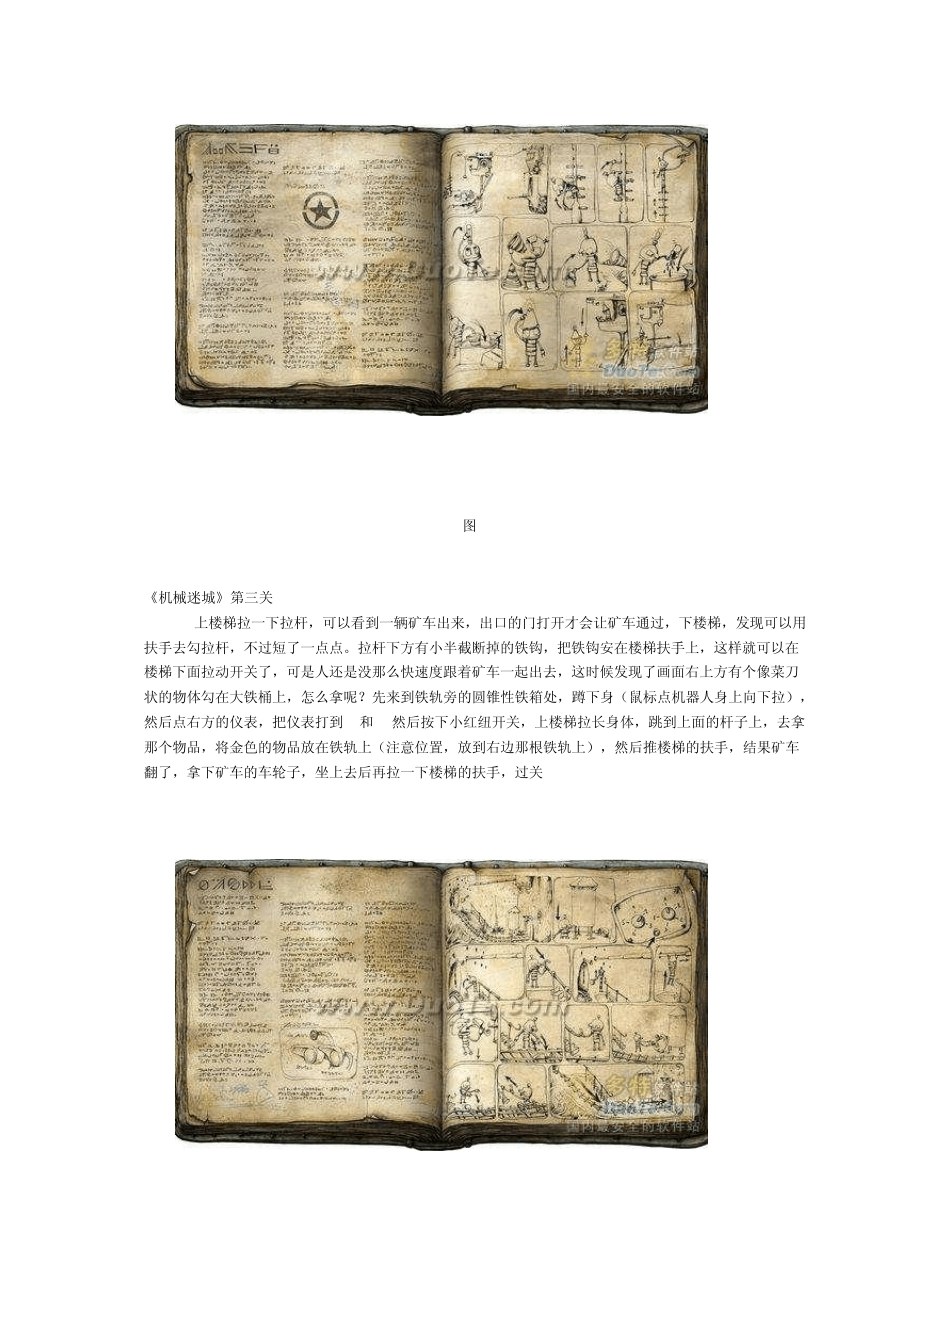 www.DuoTe.com
多特软件站
DuoTe.Com
国内最安全的软件站
图
《机械迷城》第三关
上楼梯拉一下拉杆，可以看到一辆矿车出来，出口的门打开才会让矿车通过，下楼梯，发现可以用
扶手去勾拉杆，不过短了一点点。拉杆下方有小半截断掉的铁钩，把铁钩安在楼梯扶手上，这样就可以在
楼梯下面拉动开关了，可是人还是没那么快速度跟着矿车一起出去，这时候发现了画面右上方有个像菜刀
状的物体勾在大铁桶上，怎么拿呢？先来到铁轨旁的圆锥性铁箱处，蹲下身（鼠标点机器人身上向下拉），
然后点右方的仪表，把仪表打到 和 然后按下小红纽开关，上楼梯拉长身体，跳到上面的杆子上，去拿
那个物品，将金色的物品放在铁轨上（注意位置，放到右边那根铁轨上），然后推楼梯的扶手，结果矿车
翻了，拿下矿车的车轮子，坐上去后再拉一下楼梯的扶手，过关
www.DuoTe.com
多特软件站
DuoTe.Com
国内最安全的软件站